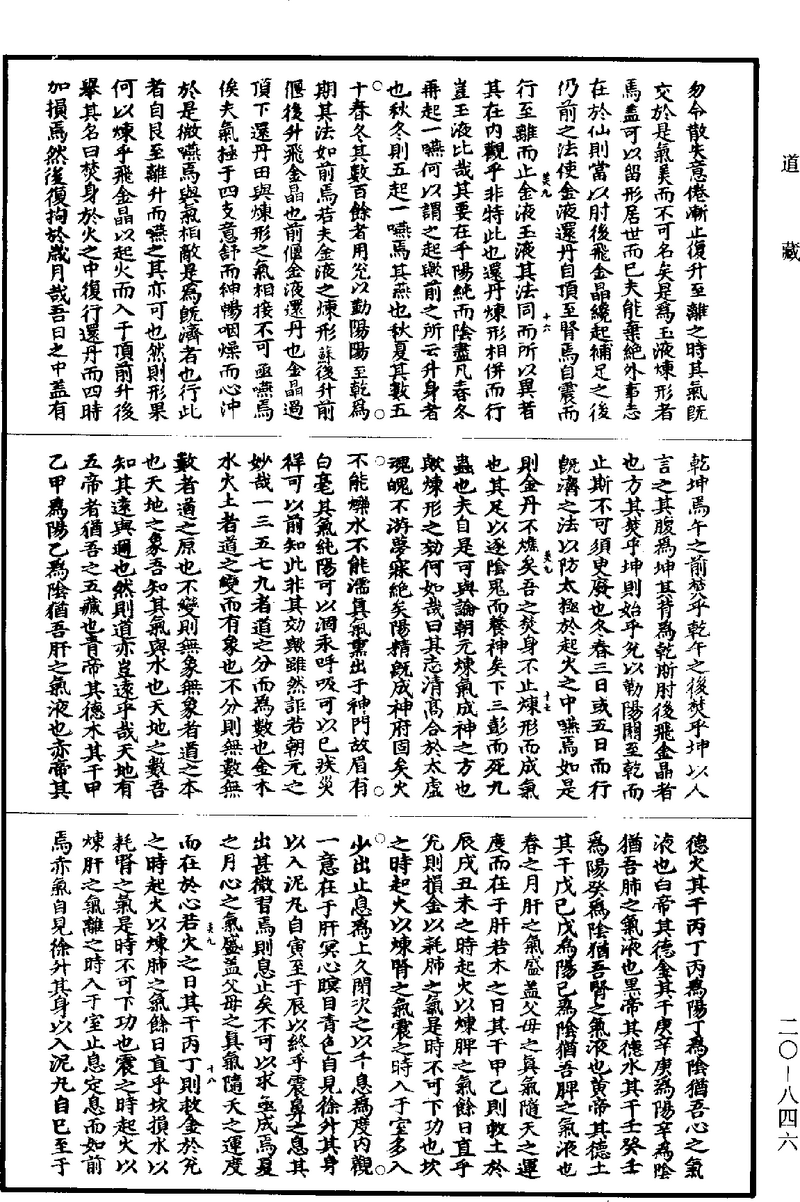 道藏
勿令散失意倦漸止復升至離之時其氣既
交於是氣美而不可名矣是爲玉液煉形者
焉蓋可以留形居世而已夫能棄絕外事志
在於仙則當以肘後飛金晶纔起補足之後
仍前之法使金液還丹自頂至腎焉自震而
行至離而止金液玉液其法同而所以異者
其在內觀乎非特此也還丹煉形相併而行
豈玉液比哉其要在乎陽純而陰盡凡春冬
再起一嚥何以謂之起歟前之所云升身者
也秋冬則五起一嚥焉其燕也秋夏其數五
十春冬其數百餘者用兊以勤陽陽至乾爲
期其法如前焉若夫金液之煉形蘇後升前
偃後升飛金晶也前偃金液還丹也金晶過
頂下還丹田與煉形之氣相接不可亟嚥焉
俟夫氣極于四支意舒而紳暢咽燥而心沖
於是微嚥焉與氣相敵是爲旣濟者也行此
者自艮至離升而嚥之其亦可也然則形果
何以煉乎飛金晶以起火而入于頂前升後
舉其名曰焚身於火之中復行還丹而四時
加損焉然後復拘於歲月哉吾日之中蓋有
乾坤焉午之前焚乎乾午之後焚乎坤以人
言之其腹爲坤其背爲乾斯肘後飛金晶者
也方其焚乎坤則始乎兊以勒陽關至乾而
止斯不可須臾廢也冬春三日或五日而行
旣濟之法以防太極於起火之中嚥焉如是
則金丹不燋矣吾之焚身不止煉形而成氣
也其足以逐陰鬼而養神矣下三彭而死九
蟲也夫自是可與論朝元煉氣成神之方也
歟煉形之効何如哉曰其志清髙合於太虛
魂魄不游夢寐絕矣陽精旣成神府固矣火
不能爍水不能濡真氣熏出于神門故眉有
白毫其氣純陽可以涸汞呼吸可以已疾災
祥可以前知此非其効歟雖然詎若朝元之
妙哉一三五七九者道之分而爲數也金木
水火土者道之變而有象也不分則無數無
數者道之原也不變則無象無象者道之本
也天地之象吾知其氣與水也天地之數吾
知其遠與邇也然則道亦豈遠乎哉天地有
五帝者猶吾之五藏也青帝其德木其干甲
乙甲爲陽乙爲陰猶吾肝之氣液也赤帝其
德火其干丙丁丙爲陽丁爲陰猶吾心之氣
液也白帝其德金其干庚辛庚爲陽辛爲陰
猶吾肺之氣液也黒帝其德水其干壬癸壬
爲陽癸爲陰猶吾腎之氣液也黄帝其德土
其干戊己戊爲陽己爲陰猶吾脾之氣液也
春之月肝之氣盛蓋父母之真氣隨天之運
度而在于肝若木之日其干甲乙則救土於
辰戌丑未之時起火以煉脾之氣餘日直乎
兊則損金以耗肺之氣是時不可下功也坎
之時起火以煉腎之氣震之時入于室多入
少出止息爲上久閉次之以千息爲度內觀
一意在于肝冥心瞑目青色自見徐升其身
以入泥丸自寅至于辰以終乎震鼻之息其
出甚微習焉則息止矣不可以求亟成焉夏
之月心之氣盛蓋父母之真氣隨天之運度
而在於心若火之日其干丙丁則救金於兊
之時起火以煉肺之氣餘日直乎坎損水以
耗腎之氣是時不可下功也震之時起火以
煉肝之氣離之時入于室止息定息而如前
焉赤氣自見徐升其身以入泥丸自巳至于
二〇－八四六